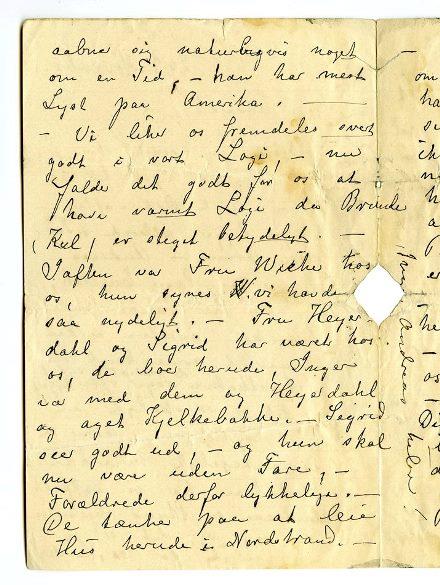 aabne sig naturligvis noget
om en Tid, – han har mest
Lyst paa Amerika. —
– Vi liker os fremdeles svært
godt i vort Logi, – nu
falder det godt for os at
have varmt Logi da Brænde
(Kul) er steget betydeligt. —
Iaften var Fru Wiche hos
os, hun synes vi havde
saa nydeligt. – Fru Heyer-
dahl og Sigrid har været hos
os, de boer herude, Inger
er med dem og Heyerdahl
og aget Kjelkebakke. – Sigrid
seer godt ud, – og hun skal
nu være uden Fare, –
Forældrede derfor lykkelige. –
De tænker paa at leie
Hus herude i Nordstrand. —
Andreas hilser!
om
ha